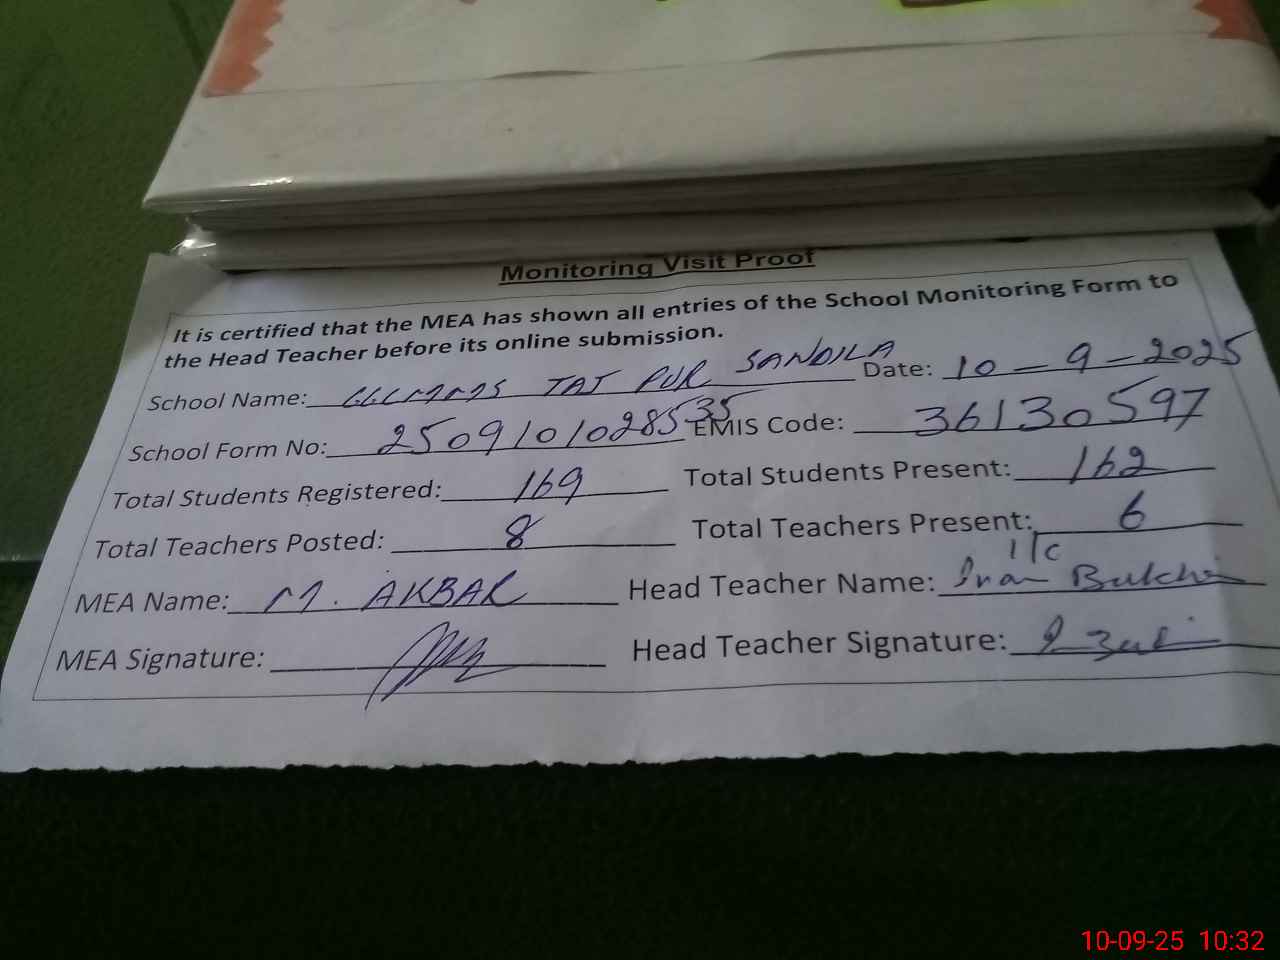 Monitoring Visit Proof
It is certified that the MEA has shown all entries of the School Monitoring Form to
the Head Teacher before its online submission.
School Name: TAJ PUR SANDILA Date: 10-9-2025
School Form No: 2509101028535 EMIS Code: 36130597
Total Students Registered: 169 Total Students Present: 162
Total Teachers Posted: 8 Total Teachers Present: 6
I/C
MEA Name: M. AKBAR Head Teacher Name:
MEA Signature: Head Teacher Signature:
10-09-25 10:32